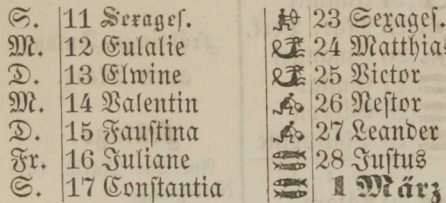 S. 11 Sexages. 23 Sexages.
M. 12 Eulalie 24 Matthias
D. 13 Elwine 25 Victor
M. 14 Valentin 26 Nestor
D. 15 Faustina 27 Leander
Fr. 16 Juliane 28 Justus
S. 17 Constantia 1 März